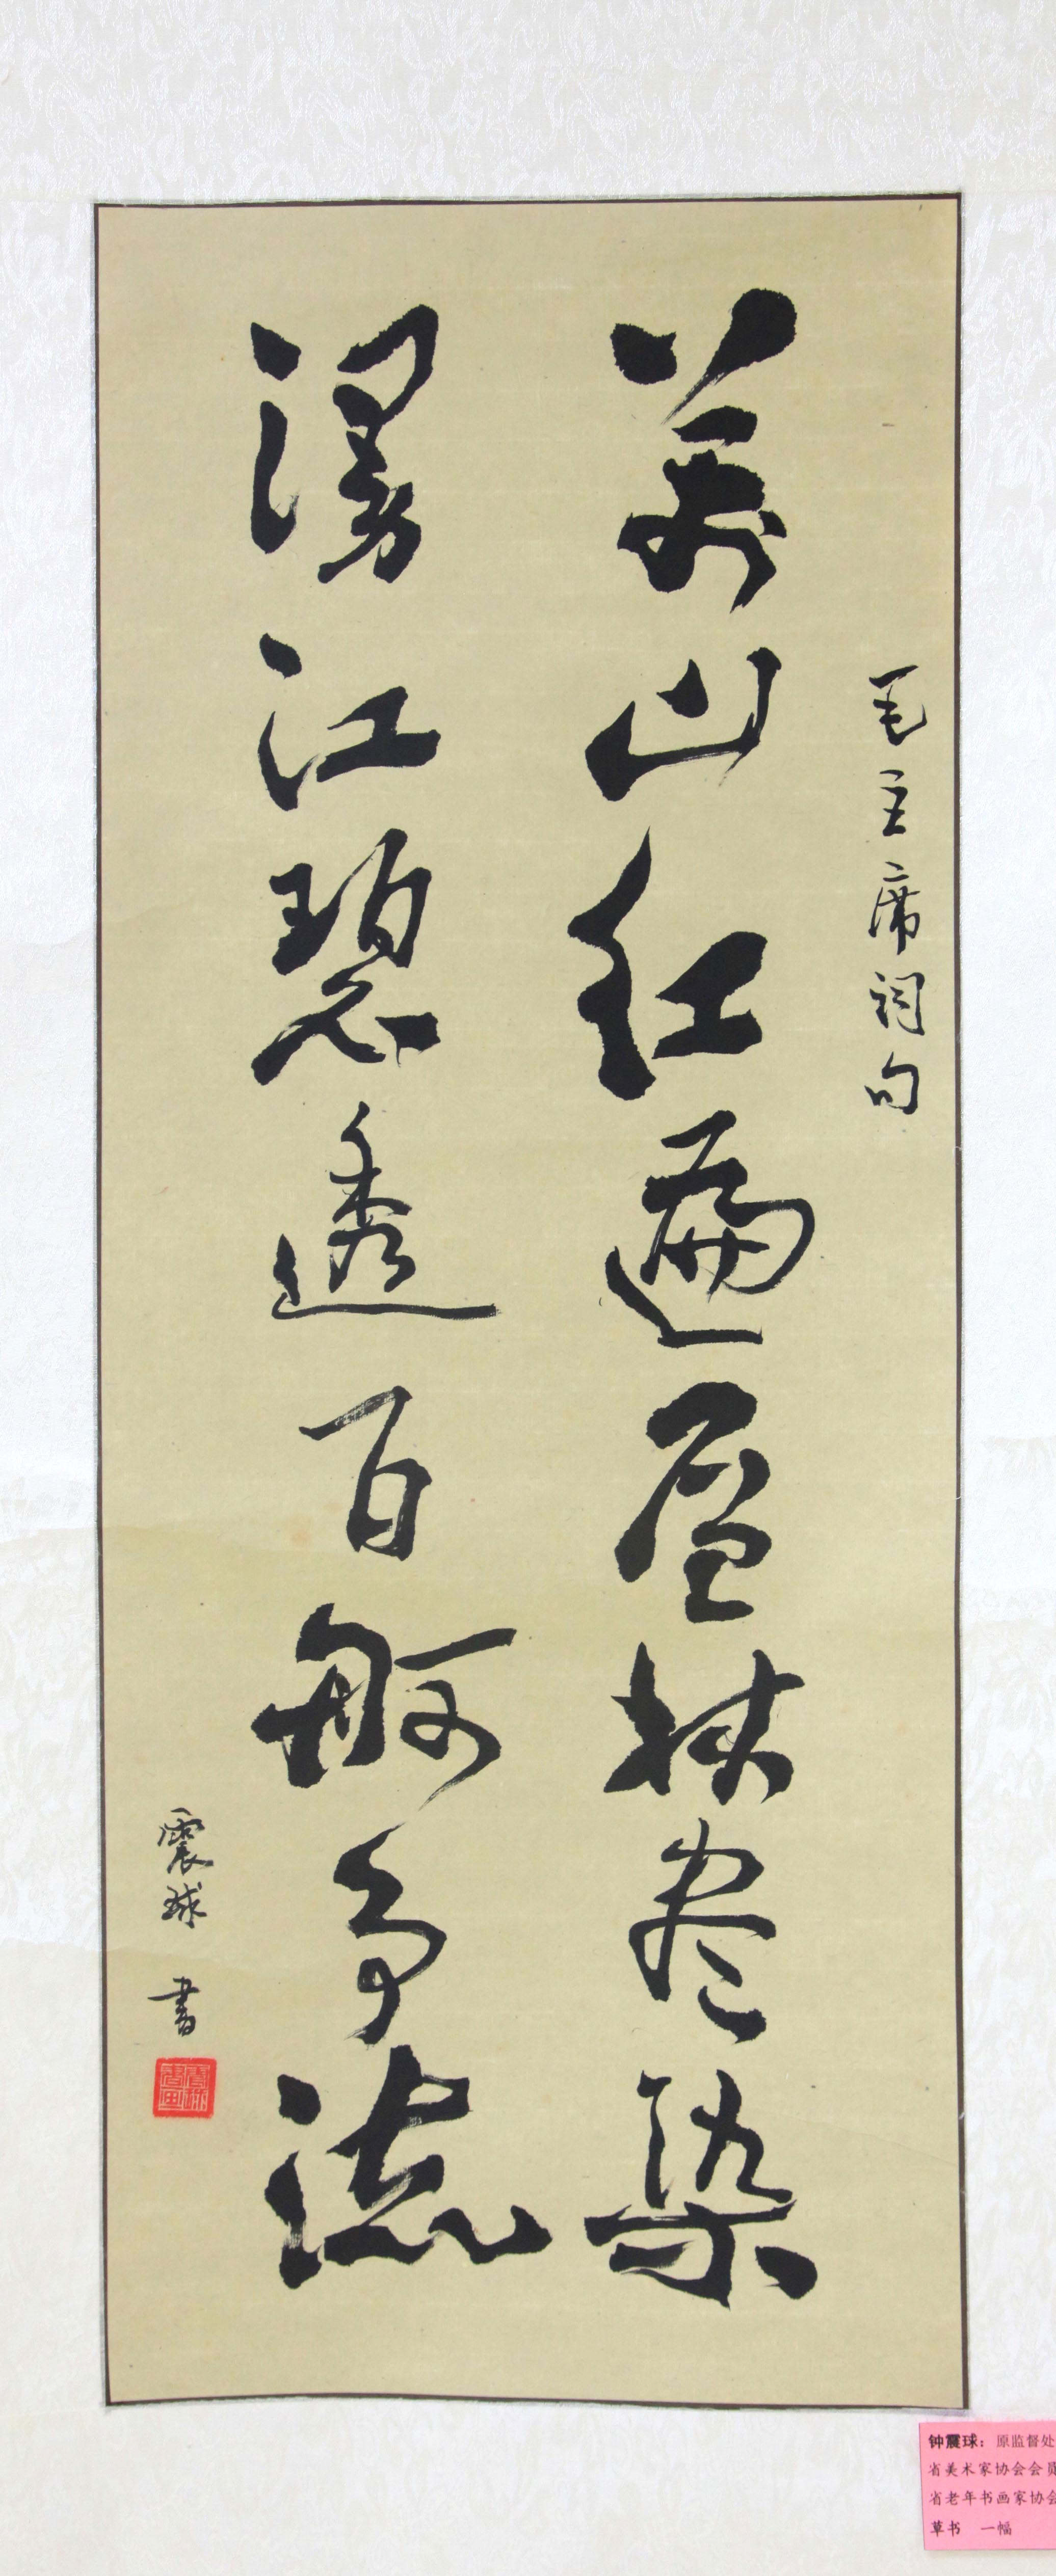 毛主席詞句
萬山紅遍層林尽染
漫江碧透百舸争流
震球 書
钟震球：原监督处
省美术家协会会员
省老年书画家协会
草书 一幅